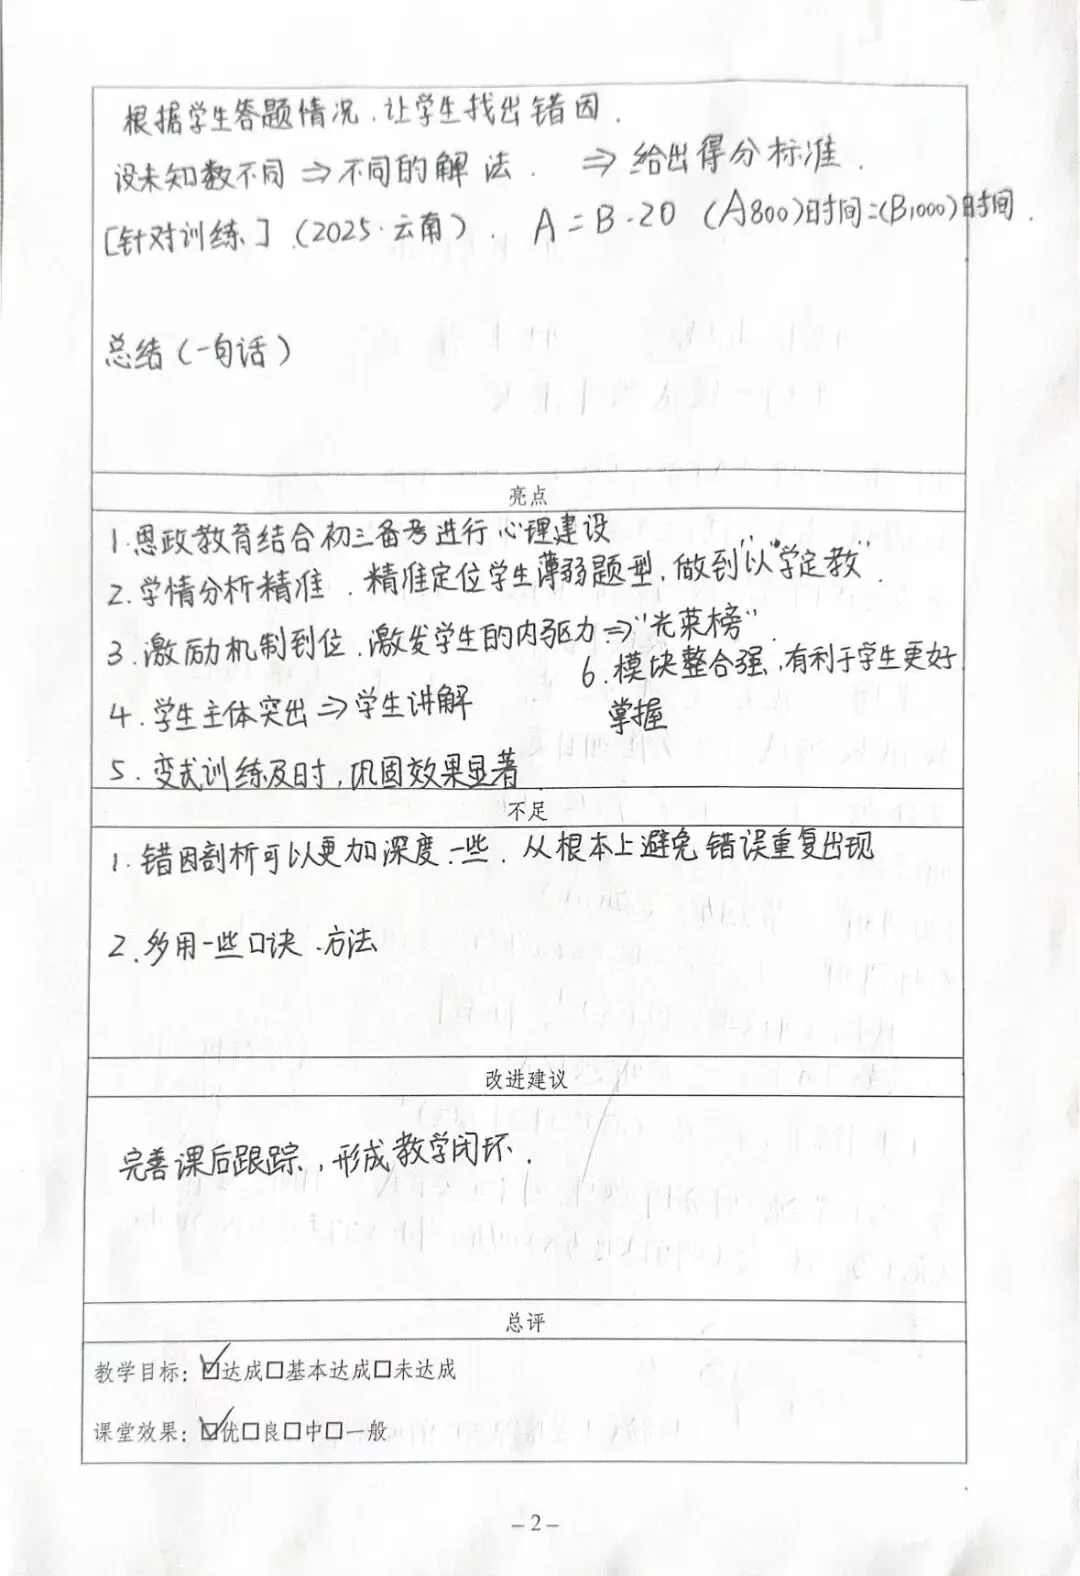 根据学生答题情况.让学生找出错因.
设未知数不同⇒不同的解法. ⇒给出得分标准.
[针对训练](2025·云南). A=B-20 (A800)时间=(B1000)时间.
总结(一句话)
亮点
1.思政教育结合初三备考进行心理建设
2.学情分析精准.精准定位学生薄弱题型,做到"以"学定教".
3.激励机制到位.激发学生的内驱力⇒"光荣榜".
4.学生主体突出⇒学生讲解
5.变式训练及时,巩固效果显著
6.模块整合强,有利于学生更好
掌握
不足
1.错因剖析可以更加深度一些.从根本上避免错误重复出现
2.多用一些口诀.方法
改进建议
完善课后跟踪,形成教学闭环.
总评
教学目标:☑达成□基本达成□未达成
课堂效果:☑优□良□中□一般
-2-